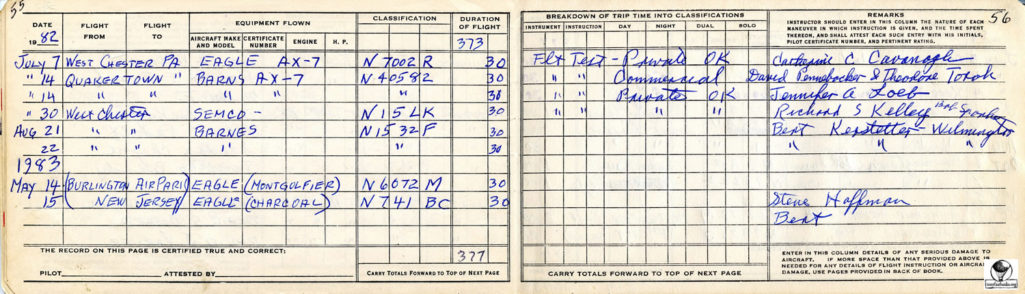 55
56
DATE FLIGHT FROM FLIGHT TO EQUIPMENT FLOWN CLASSIFICATION DURATION OF FLIGHT
1982 AIRCRAFT MAKE AND MODEL CERTIFICATE NUMBER ENGINE H. P. 373
BREAKDOWN OF TRIP TIME INTO CLASSIFICATIONS
INSTRUMENT INSTRUMENT DAY NIGHT DUAL SOLO
REMARKS
INSTRUCTOR SHOULD ENTER IN THIS COLUMN THE NATURE OF EACH
MANEUVER IN WHICH INSTRUCTION IS GIVEN, AND THE TIME SPENT
THEREON, AND SHALL ATTEST EACH SUCH ENTRY WITH HIS INITIALS,
PILOT CERTIFICATE NUMBER, AND PERTINENT RATING.
JULY 7 WEST CHESTER PA EAGLE AX-7 N7002R 30 Flt Test - Private OK Catharine C Cavanagh
" 14 QUAKERTOWN " BARNS AX-7 N40582 30 " " Commercial David Pennebacker & Theodore Torok
" 14 " " " " " 30 " " Private OK Jennifer A Loeb
" 30 West Chester SEMCO - N15LK 30 " " " " Richard S Kelley
AUG 21 " " BARNES N1532F 30 Bert Kerstetter - Wilmington
22 " " " " 30 " " "
1983
MAY 14 (BURLINGTON AIR PARK) EAGLE (MONTGOLFIER) N6072M 30
15 NEW JERSEY EAGLE (CHARCOAL) N741BC 30 Steve Hoffman
Bert
THE RECORD ON THIS PAGE IS CERTIFIED TRUE AND CORRECT: 377
PILOT ATTESTED BY CARRY TOTALS FORWARD TO TOP OF NEXT PAGE
CARRY TOTALS FORWARD TO TOP OF NEXT PAGE
ENTER IN THIS COLUMN DETAILS OF ANY SERIOUS DAMAGE TO
AIRCRAFT. IF MORE SPACE THAN THAT PROVIDED ABOVE IS
NEEDED FOR ANY DETAILS OF FLIGHT INSTRUCTION OR AIRCRAFT
DAMAGE, USE PAGES PROVIDED IN BACK OF BOOK.